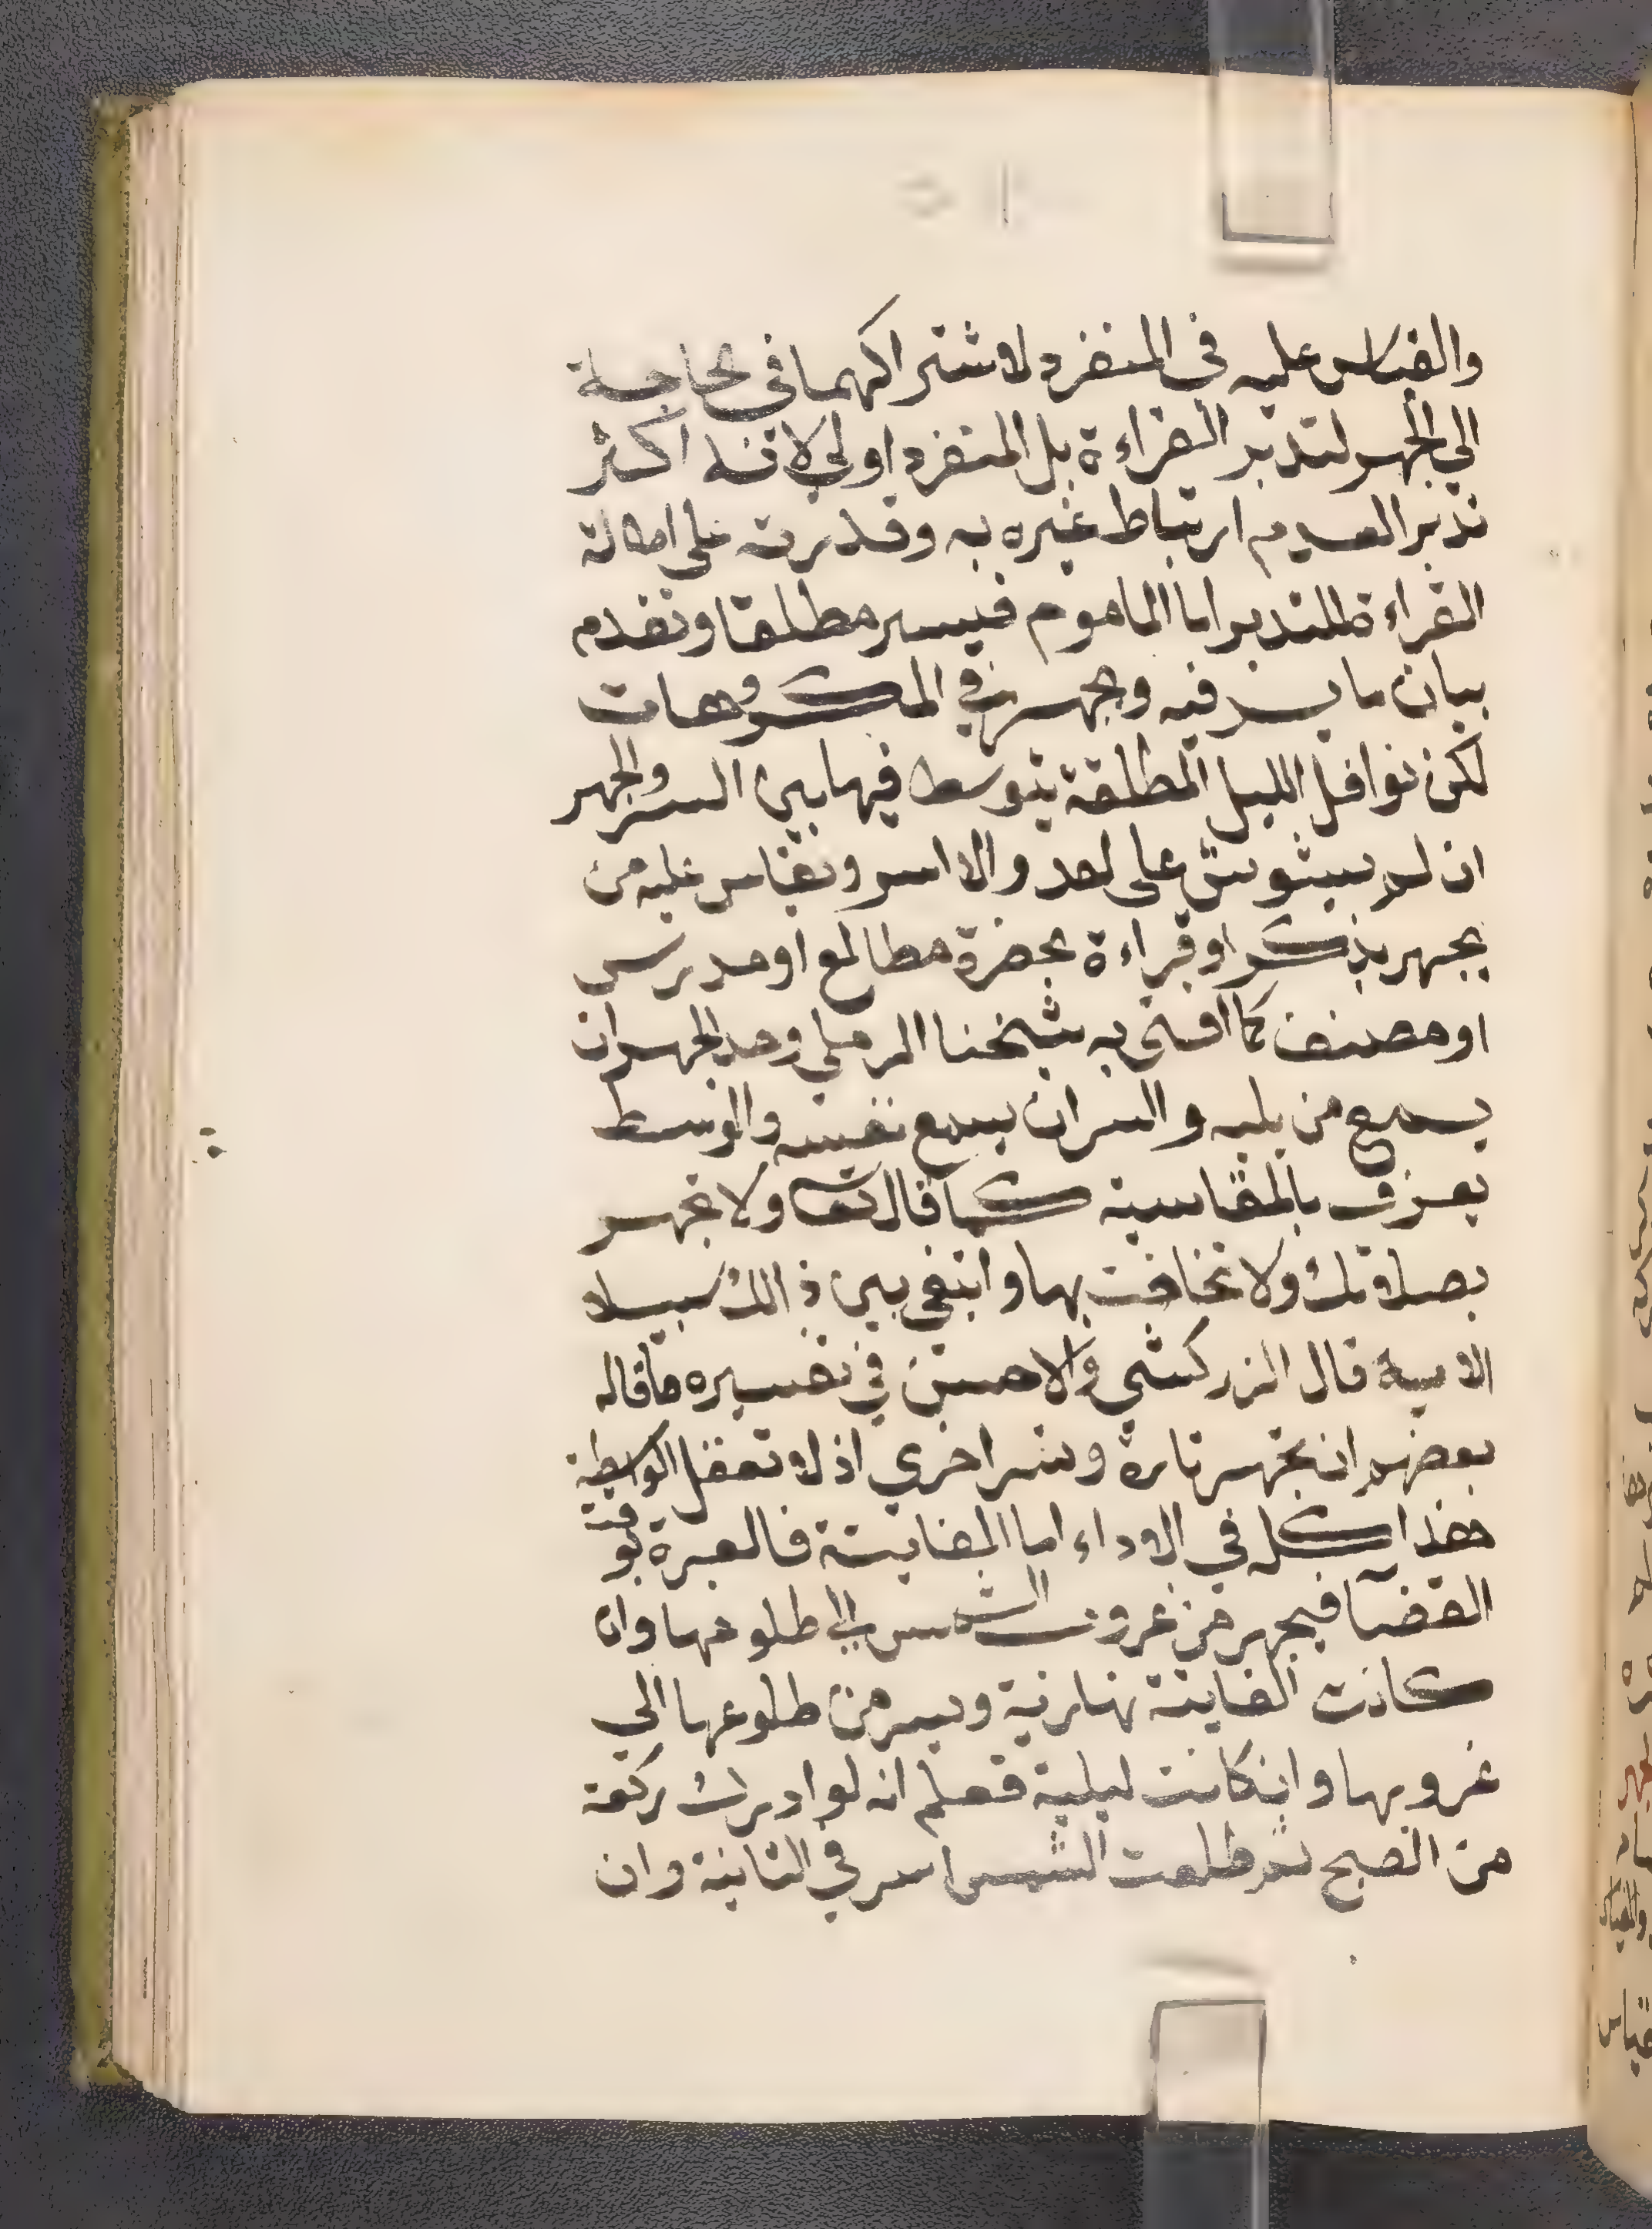 والقياس عليه في المنفرد لاشتراكهما في الحاجة
الي الجهر لتدبر القراءة بل المنفرد اولي لانه اكثر
تدبرا لعدم ارتباط غيره به وقدرته علي اطالة
القراءة للتدبر اما الماموم فيسر مطلقا وتقدم
بيان ما يسر فيه ويجهر في المكروهات
لكن نوافل الليل المطلقة يتوسط فيها بين السر والجهر
ان لم يشوش علي احد والا اسر ويقاس عليه من
يجهر بذكر او قراءة بحضرة مطالع او مدرس
او مصنف كما افتي به شيخنا الرملي وحد الجهر ان
يسمع من يليه والسر ان يسمع نفسه والوسط
يعرف بالمقايسة كما قال تعا ولا تجهر
بصلاتك ولا تخافت بها وابتغي بين ذالك سبيلا
الاية قال الزركشي والاحسن في تفسيره ما قاله
بعضهم ان يجهر تارة ويسر اخري اذ لا تعقل الواسطة
هذا كله في الاداء اما الفايتة فالعبرة بوقت
القضآ فيجهر من غروب الشمس الي طلوعها وان
كانت الفايتة نهارية ويسر من طلوعها الي
غروبها وان كانت ليلية فعلم انه لو ادرك ركعة
من الصبح ثم طلعت الشمس اسر في الثانية وان